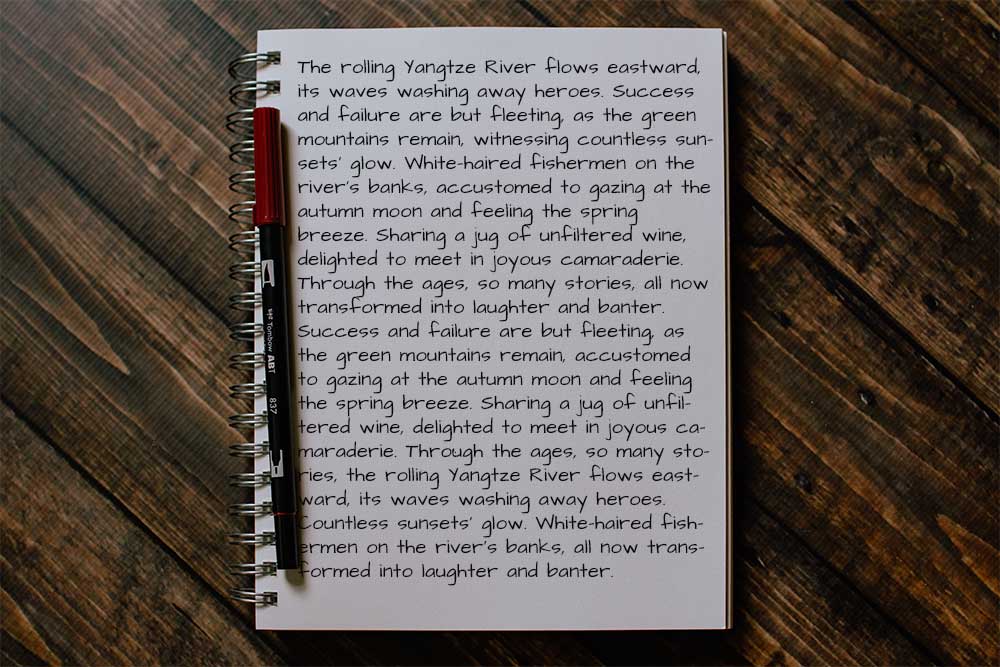 The rolling Yangtze River flows eastward,
its waves washing away heroes. Success
and failure are but fleeting, as the green
mountains remain, witnessing countless sun-
sets' glow. White-haired fishermen on the
river's banks, accustomed to gazing at the
autumn moon and feeling the spring
breeze. Sharing a jug of unfiltered wine,
delighted to meet in joyous camaraderie.
Through the ages, so many stories, all now
transformed into laughter and banter.
Success and failure are but fleeting, as
the green mountains remain, accustomed
to gazing at the autumn moon and feeling
the spring breeze. Sharing a jug of unfil-
tered wine, delighted to meet in joyous ca-
maraderie. Through the ages, so many sto-
ries, the rolling Yangtze River flows east-
ward, its waves washing away heroes.
Countless sunsets' glow. White-haired fish-
ermen on the river's banks, all now trans-
formed into laughter and banter.
Tombow ABT 837